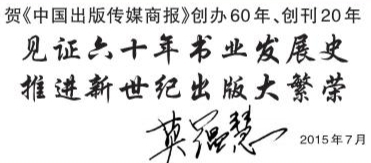 贺《中国出版传媒商报》创办60年、创刊20年
见证六十年书业发展史
推进新世纪出版大繁荣
莫蕴慧
2015年7月